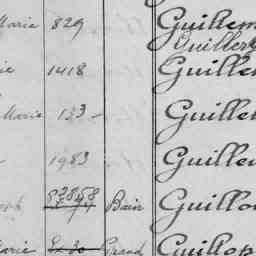 Marie 829 Guillem
Guillere
ie 1418 Guiller
Marie 133 Guiller
1983 Guiller
33858
ph Bain Guillou
Marie Ex 30 Grand Guillop